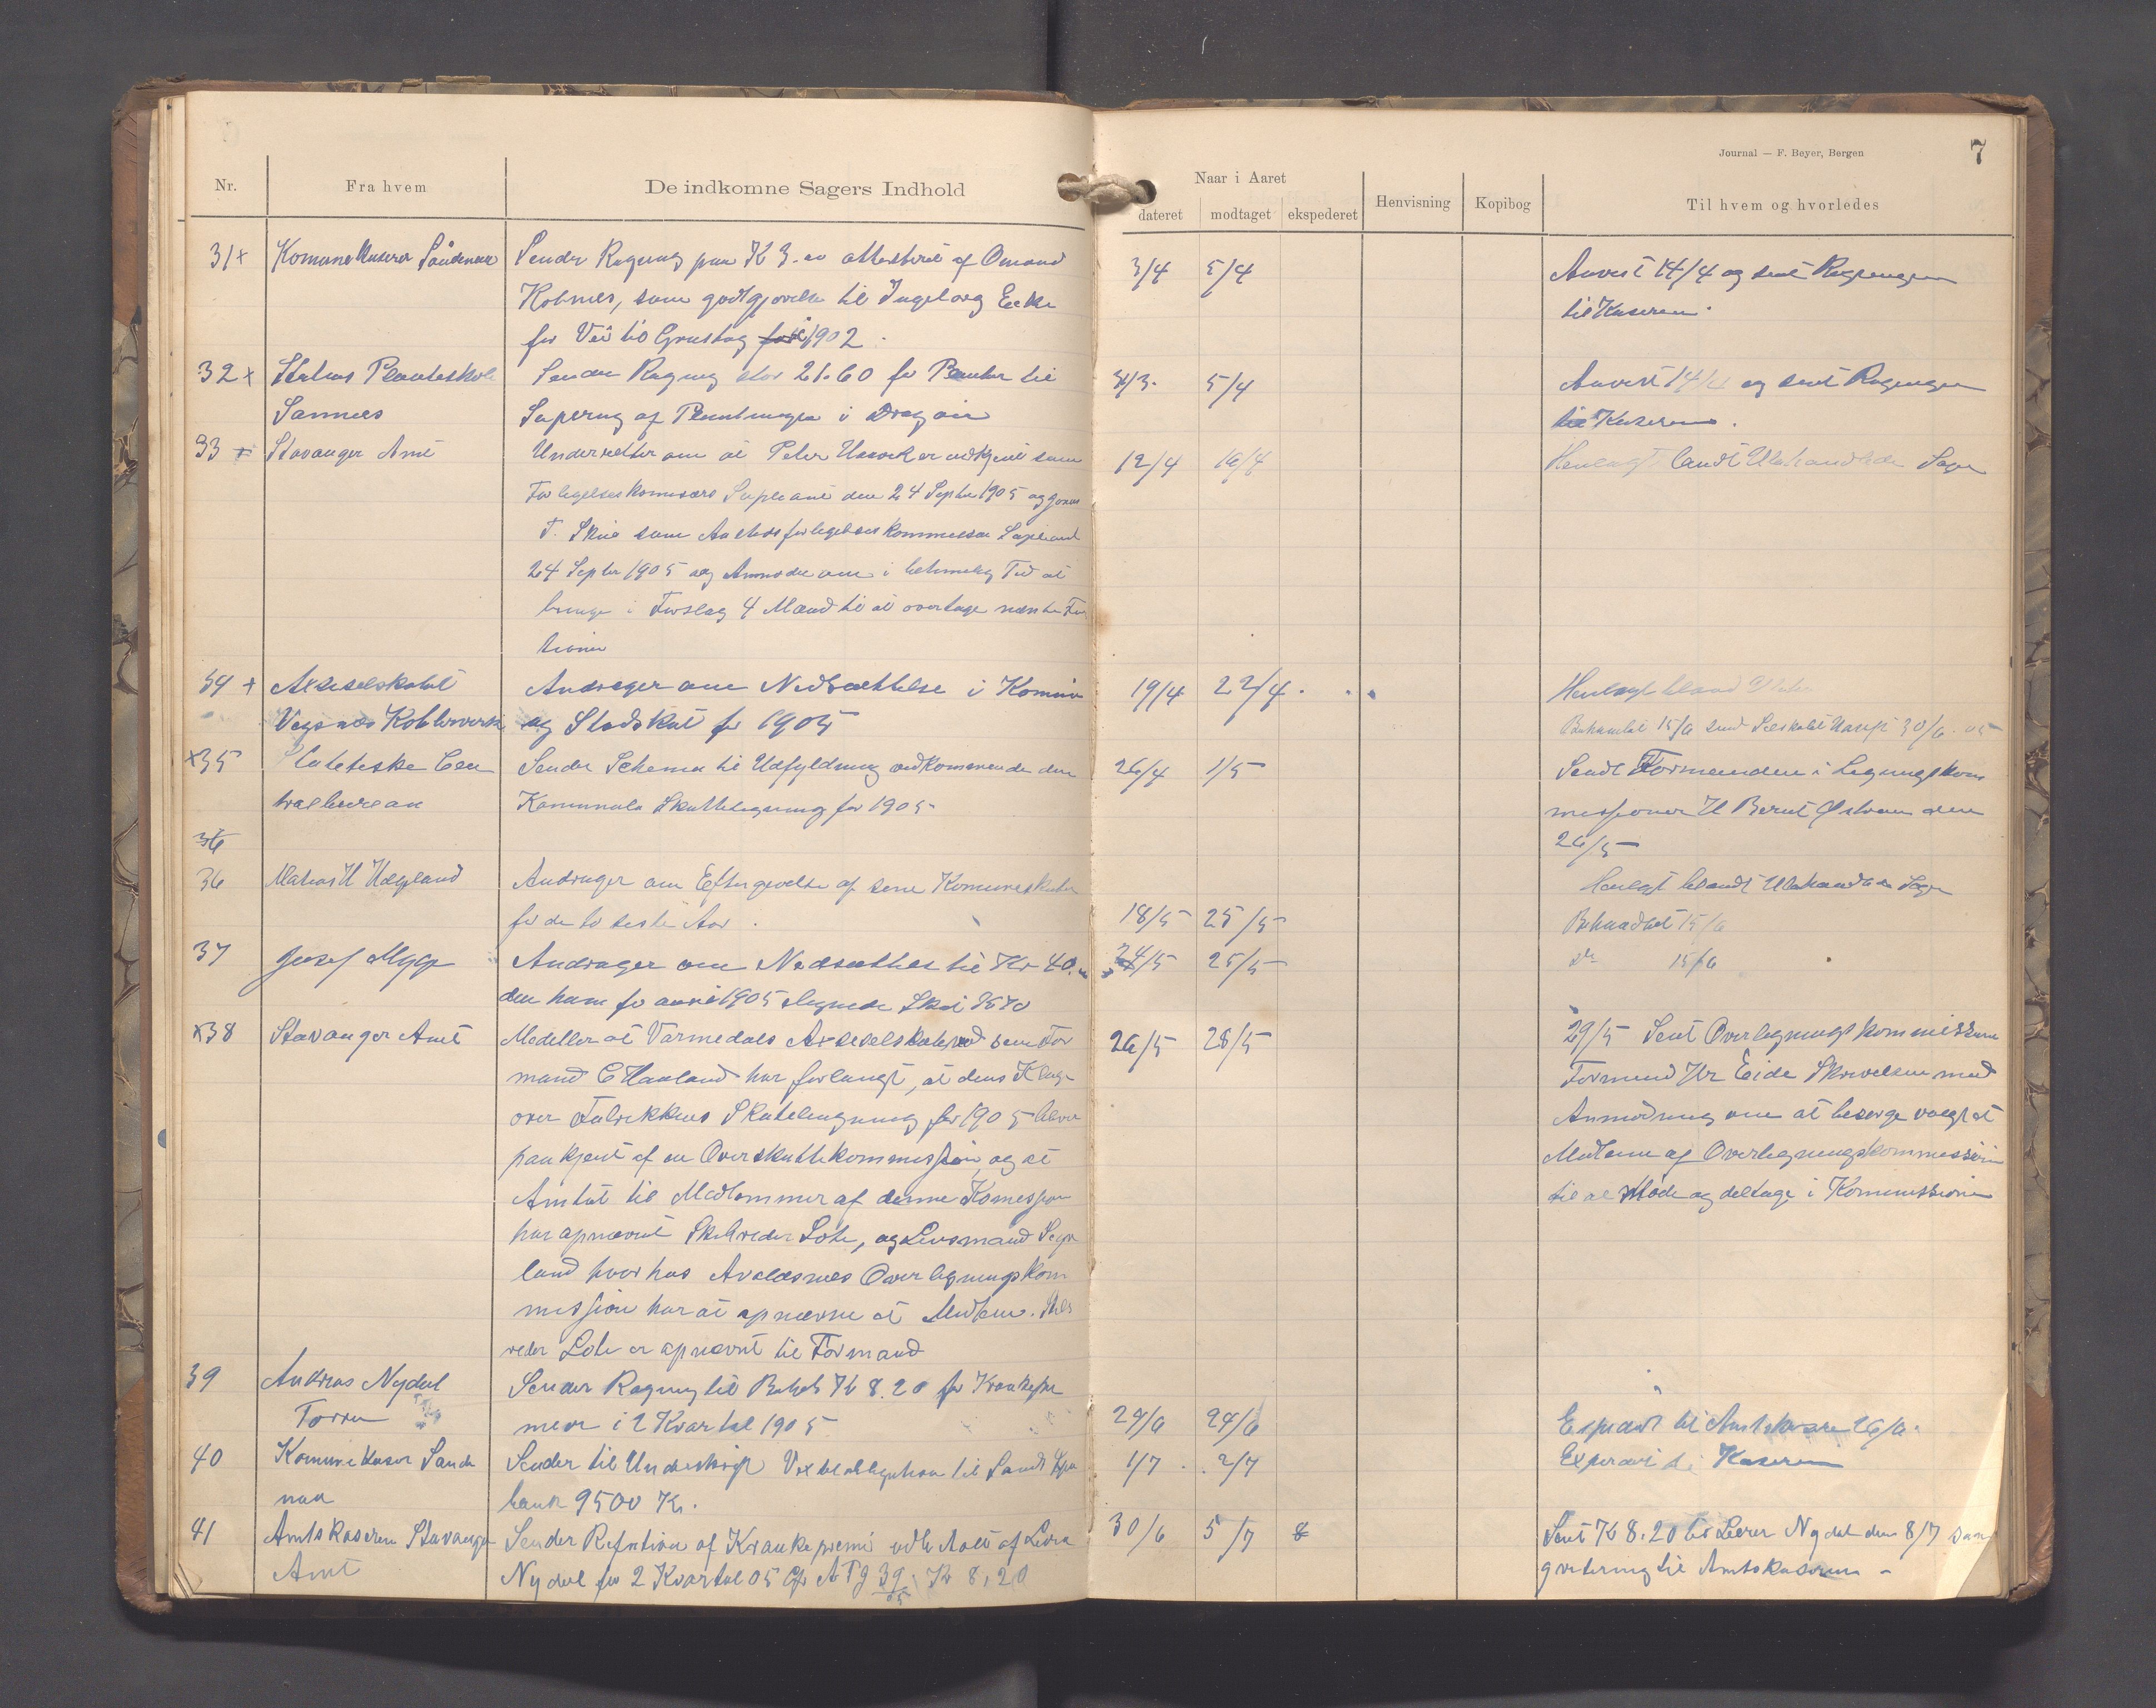 Journal — F. Beyer, Bergen
7
Nr.
Fra hvem
De indkomne Sagers Indhold
Naar i Aaret
dateret
modtaget
ekspederet
Henvisning
Kopibog
Til hvem og hvorledes
31 x
Komunekaserer
Sender Regning paa K 3. attesteret af Omund
Kolnes, som godtgjørelse til Ingeborg Eike
for Vei til Grustag for 1902.
3/4
5/4
Anvist 14/4 og sent Regningen
til Kaseren.
32 x
Planteskole
Sannes
Sender Regning stor 21.60 for Planter til
Supering af Plantningen i
5/4
Anvist 14/4 og sent Regningen
til Kaseren.
33
Stavanger Amt
Underretter om at Peter er udkjent som
Forligelseskomisærs Supleant den 24 Septbr 1905 og
T. som forligelseskommissær Supleant
24 Septbr 1905 og Anmoder om i betimelig Tid at
bringe i Forslag 4 Mænd til at overtage næste
12/4
Henlagt blandt Ubehandlede Sager
34 +
Aktieselskabet
Vigsnes Kobberverk
Andrager om Nedsættelse i Komune
og Stadskat for 1905
19/4
22/4
Henlagt bland
Behandlet 15/6 send 30/6. 05
x35
Statistiske Cen
tralbureau
Sender Schema til Udfyldning vedkommende den
Kommunale Skatteligning for 1905
26/4
1/5
Sendt Formanden i Ligningskom
missionen H Bernt den
26/5
36
36
Matias H Hægeland
Andrager om Eftergivelse af sine Komuneskatter
for de to siste Aar.
18/5
25/5
Henlagt blandt Ubehandlede Sager
Behandlet 15/6
37
Josef Mygg
Andrager om Nedsættelse til Kr 40.
den ham for 1905 ilignede Skat
24/5
25/5
do 15/6
x38
Stavanger Amt
Medeller at Varmedals Aktieselskab ved sen For
mand C Haaland har forlangt, at dens Klage
over Fabrikkens Skateligning for 1905 bliver
paakjent af en Overskattekommission, og at
Amtet til Medlemmer af denne Komission
har opnævnt Skibsreder Lote, og Lensmand
land hvorhos Avaldsnes Overligningskom
mission har at opnævne et Medlem. Skibs
reder Lote er opnævnt til Formand
26/5
28/5
29/5 Sent Overligningskommissions
Formand Hr Eide Skrivelsen med
Anmodning om at besørge valgt et
Medlem af Overligningskommission
til at Møde og deltage i Kommissionen
39
Andreas Nydal
Sender Regning til Beløb Kr 8.20 for Krankepre
mier i 2 Kvartal 1905
24/6
24/6
Expedert til Amtskaseren 26/6.
40
Komunekaserer Sande
Sender til Underskrift Vexelobligation til
bank 9500 Kr.
1/7
2/7
Expedert til Kaseren
41
Amtskaseren Stavanger
Amt
Sender Refution af Krankepremi udbetalt af Lærer
Nydal for 2 Kvartal 05 39/05 Kr 8,20
30/6
5/7
8
Sent Kr 8.20 til Lærer Nydal den 8/7
qvitering til Amtskaseren –